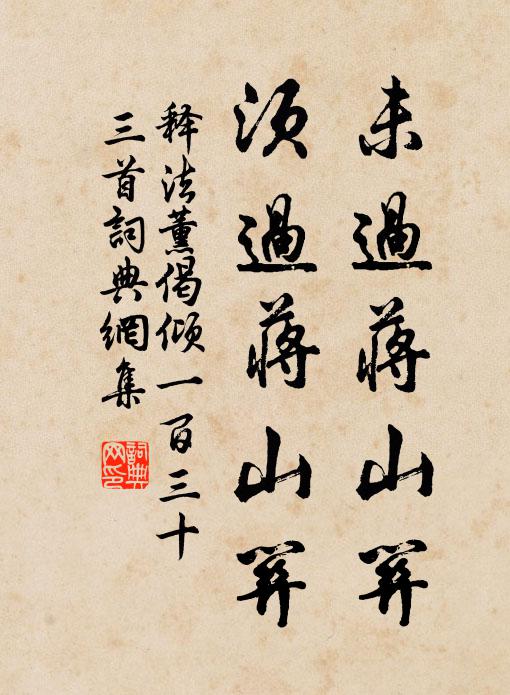 未過蔣山關
須過蔣山關
释法薰偈倾一百三十
三首詞典網集
詞典
网印